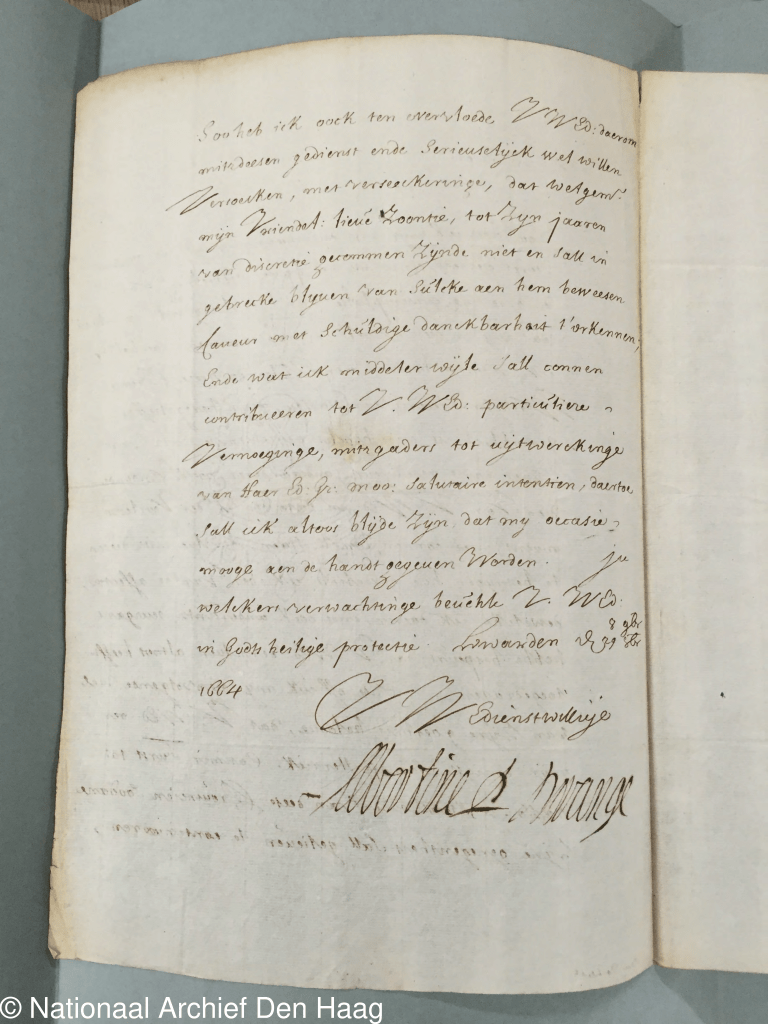 Soo heb ick oock ten overvloede V W Ed: daerom
mitsdeesen gedienst ende Serieuselijck wel willen
Versoecken, met verseeckeringe, dat welgem:
mijn Vriendel: lieve Zoontie, tot Zijn jaaren
van discretie gecommen Zijnde niet en sall in
gebrecke blijven van Sulcke aen hem beweesen
faveur met Schuldige danckbarheit t'erkennen,
Ende wat ick middeler wijle Sall connen
contribueeren tot V. W Ed: particuliere
Vernoeginge, mitsgaders tot uijtwerckinge
van Haer Ed. Gr. moo: salutaire intentien, daertoe
Sall ick altoos blijde Zijn dat my occasie
mooge aen de handt gegeven Worden. In
welckers verwachtinge bevehle V. W Ed:
in Godts heilige protectie. Lewarden
1664
V W Edienstwillije
Albertine d'Orange
© Nationaal Archief Den Haag